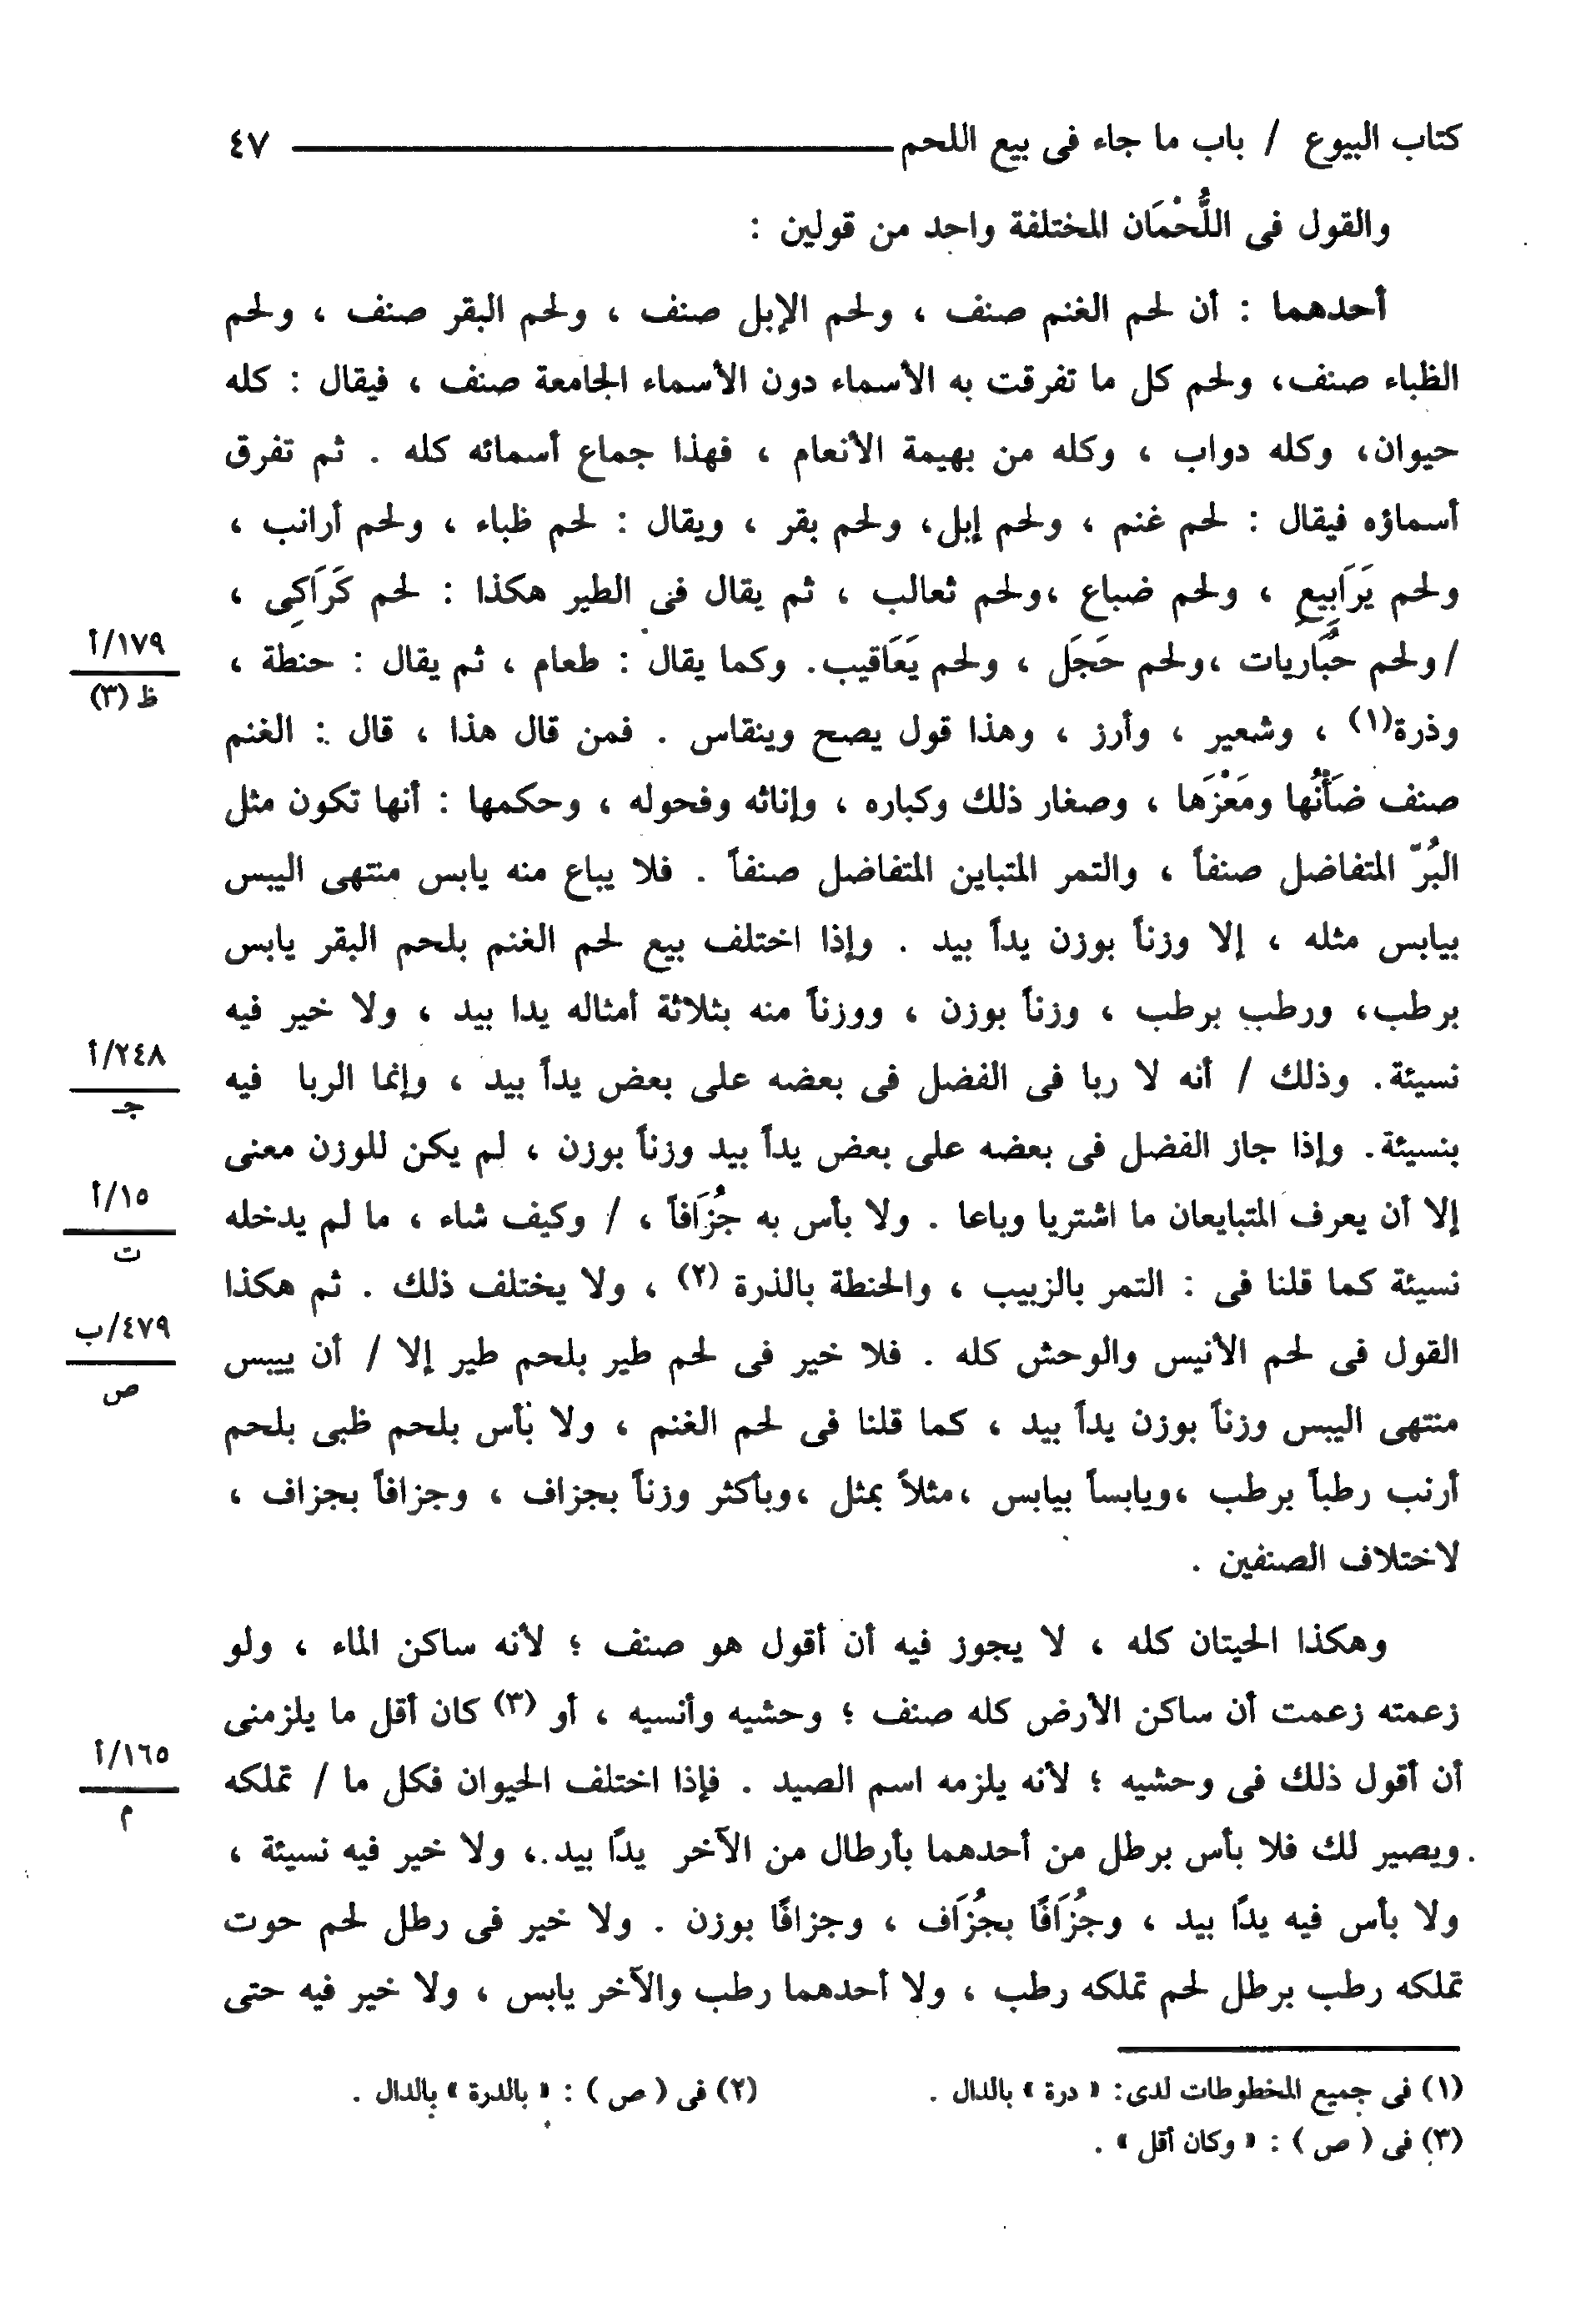 كتاب البيوع / باب ما جاء فى بيع اللحم ٤٧
والقول فى اللُّحْمَان المختلفة واحد من قولين :
أحدهما : أن لحم الغنم صنف ، ولحم الإبل صنف ، ولحم البقر صنف ، ولحم
الظباء صنف، ولحم كل ما تفرقت به الأسماء دون الأسماء الجامعة صنف ، فيقال : كله
حيوان، وكله دواب ، وكله من بهيمة الأنعام ، فهذا جماع أسمائه كله . ثم تفرق
أسماؤه فيقال : لحم غنم ، ولحم إبل، ولحم بقر ، ويقال : لحم ظباء ، ولحم أرانب ،
ولحم يَرَابِيع ، ولحم ضباع ،ولحم ثعالب ، ثم يقال فى الطير هكذا : لحم كَرَاكِى ،
/ولحم حُبَاريات ،ولحم حَجَل ، ولحم يَعَاقيب. وكما يقال : طعام ، ثم يقال : حنطة ،
١٧٩/أ
ظ (٣)
وذرة(١) ، وشعير ، وأرز ، وهذا قول يصح وينقاس . فمن قال هذا ، قال : الغنم
صنف ضَأْنُها ومَعْزَها ، وصغار ذلك وكباره ، وإناثه وفحوله ، وحكمها : أنها تكون مثل
البُرّ المتفاضل صنفاً ، والتمر المتباين المتفاضل صنفاً . فلا يباع منه يابس منتهى اليبس
بيابس مثله ، إلا وزناً بوزن يداً بيد . وإذا اختلف بيع لحم الغنم بلحم البقر يابس
برطب، ورطب برطب ، وزناً بوزن ، ووزناً منه بثلاثة أمثاله يدا بيد ، ولا خير فيه
نسيئة. وذلك / أنه لا ربا فى الفضل فى بعضه على بعض يداً بيد ، وإنما الربا فيه
٢٤٨/أ
جـ
بنسيئة. وإذا جاز الفضل فى بعضه على بعض يداً بيد وزناً بوزن ، لم يكن للوزن معنى
إلا أن يعرف المتبايعان ما اشتريا وباعا . ولا بأس به جُزَافاً ، / وكيف شاء ، ما لم يدخله
١٥/أ
ت
نسيئة كما قلنا فى : التمر بالزبيب ، والحنطة بالذرة (٢) ، ولا يختلف ذلك . ثم هكذا
القول فى لحم الأنيس والوحش كله . فلا خير فى لحم طير بلحم طير إلا / أن ييبس
٤٧٩/ب
ص
منتهى اليبس وزناً بوزن يداً بيد ، كما قلنا فى لحم الغنم ، ولا بأس بلحم ظبى بلحم
أرنب رطباً برطب ،ويابساً بيابس ،مثلاً بمثل ،وبأكثر وزناً بجزاف ، وجزافاً بجزاف ،
لاختلاف الصنفين .
وهكذا الحيتان كله ، لا يجوز فيه أن أقول هو صنف ؛ لأنه ساكن الماء ، ولو
زعمته زعمت أن ساكن الأرض كله صنف ؛ وحشيه وأنسيه ، أو (٣) كان أقل ما يلزمنى
أن أقول ذلك فى وحشيه ؛ لأنه يلزمه اسم الصيد . فإذا اختلف الحيوان فكل ما / تملكه
١٦٥/أ
م
ويصير لك فلا بأس برطل من أحدهما بأرطال من الآخر يدًا بيد ، ولا خير فيه نسيئة ،
ولا بأس فيه يدًا بيد ، وجُزَافًا بجُزَاف ، وجزافًا بوزن . ولا خير فى رطل لحم حوت
تملكه رطب برطل لحم تملكه رطب ، ولا أحدهما رطب والآخر يابس ، ولا خير فيه حتى
(١) فى جميع المخطوطات لدى: « درة » بالدال .
(٢) فى ( ص ) : « بالدرة » بالدال .
(٣) فى ( ص ) : « وكان أقل » .